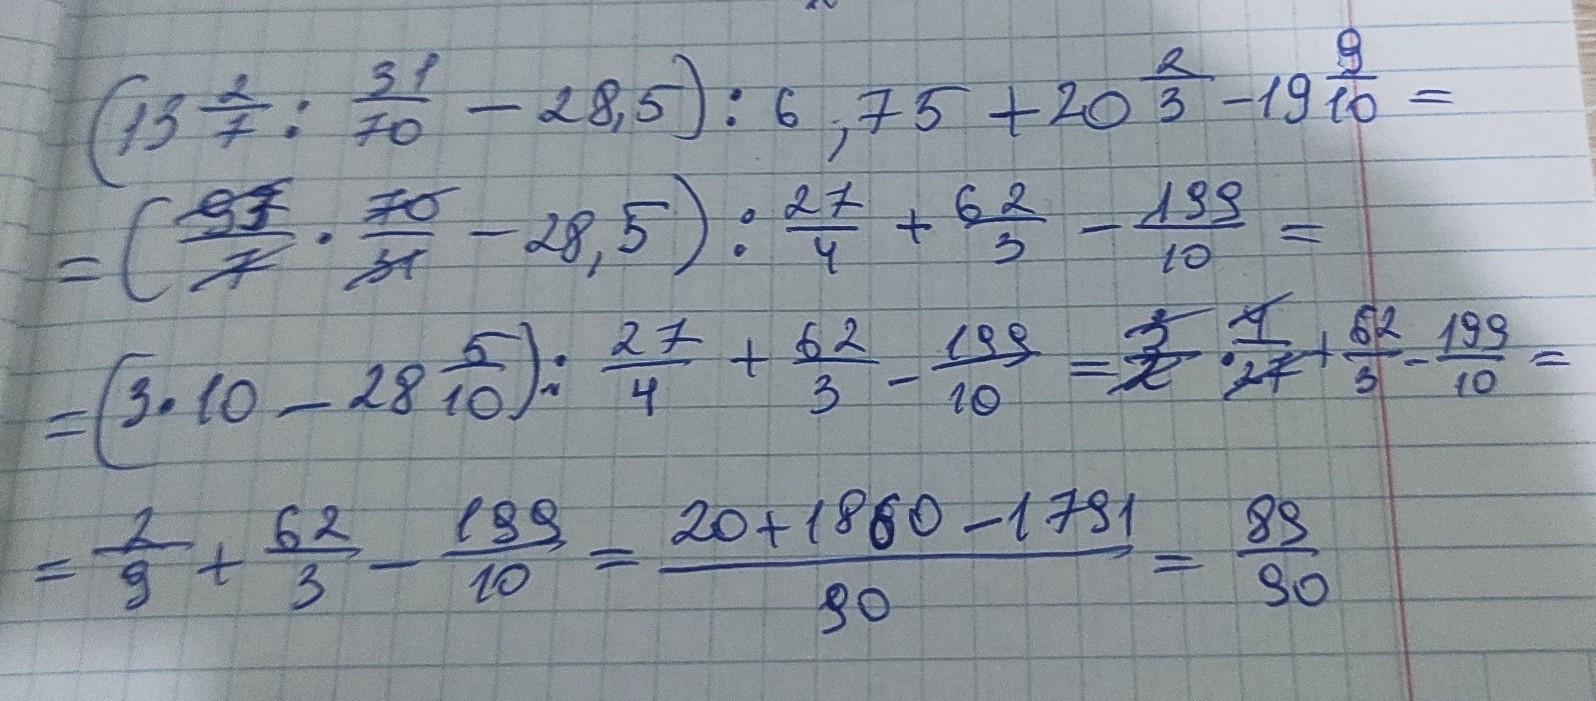 (13 2/7 : 31/70 - 28,5) : 6,75 + 20 2/3 - 19 9/10 =
= (93/7 · 70/31 - 28,5) : 27/4 + 62/3 - 199/10 =
= (3·10 - 28 5/10) : 27/4 + 62/3 - 199/10 = 3/2 · 4/27 + 62/3 - 199/10 =
= 2/9 + 62/3 - 199/10 = (20+1860-1791)/90 = 89/90